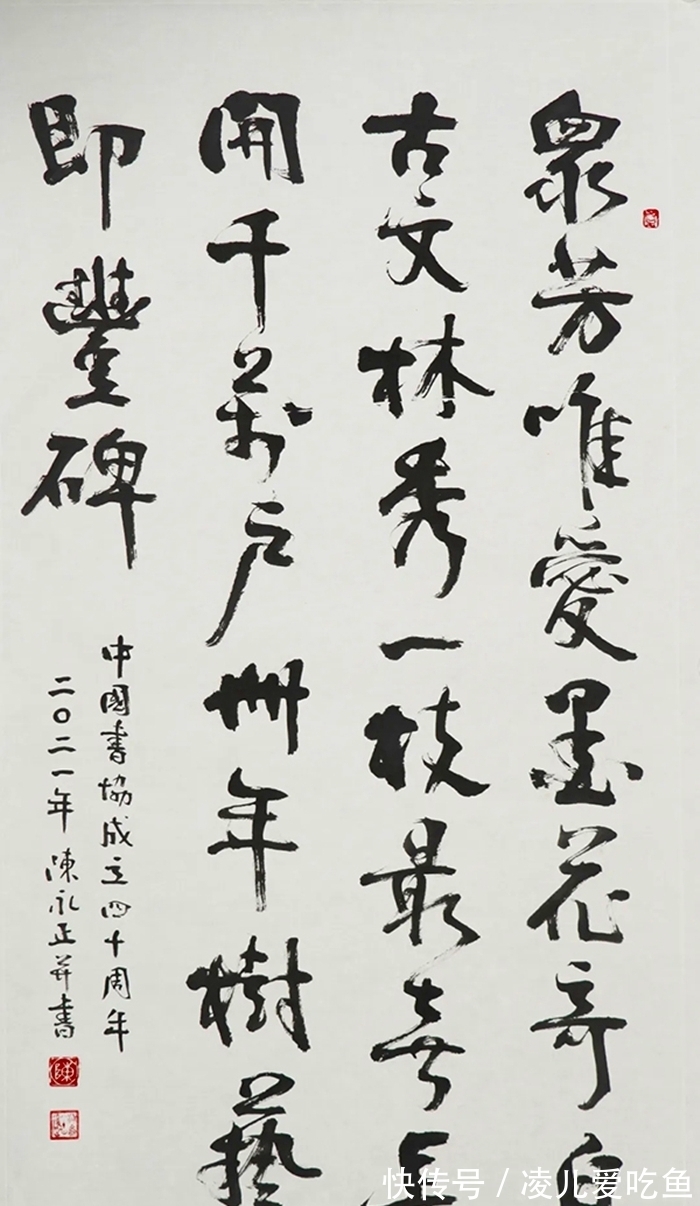 眾芳唯愛墨花奇自
古文林秀一枝最喜
開千萬户卌年樹藝
即豐碑
中國書協成立四十周年
二〇二一年 陳永正并書
陳
快传号 / 凌儿爱吃鱼